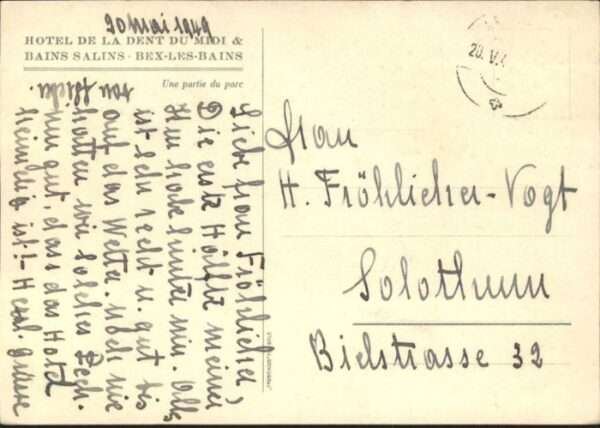 20 Mai 1949
HOTEL DE LA DENT DU MIDI &
BAINS SALINS - BEX-LES-BAINS
Une partie du parc
Liebe Frau Fröhlicher,
Die erste Hälfte meiner
Kur habe hinter mir. Alles
ist sehr recht u. gut bis
auf das Wetter. Noch nie
hatten wir solches Pech.
Nur gut, dass das Hotel
heimelig ist! - Herzl. Grüsse
von
Frau
H. Fröhlicher-Vogt
Solothurn
Bielstrasse 32
20. V.